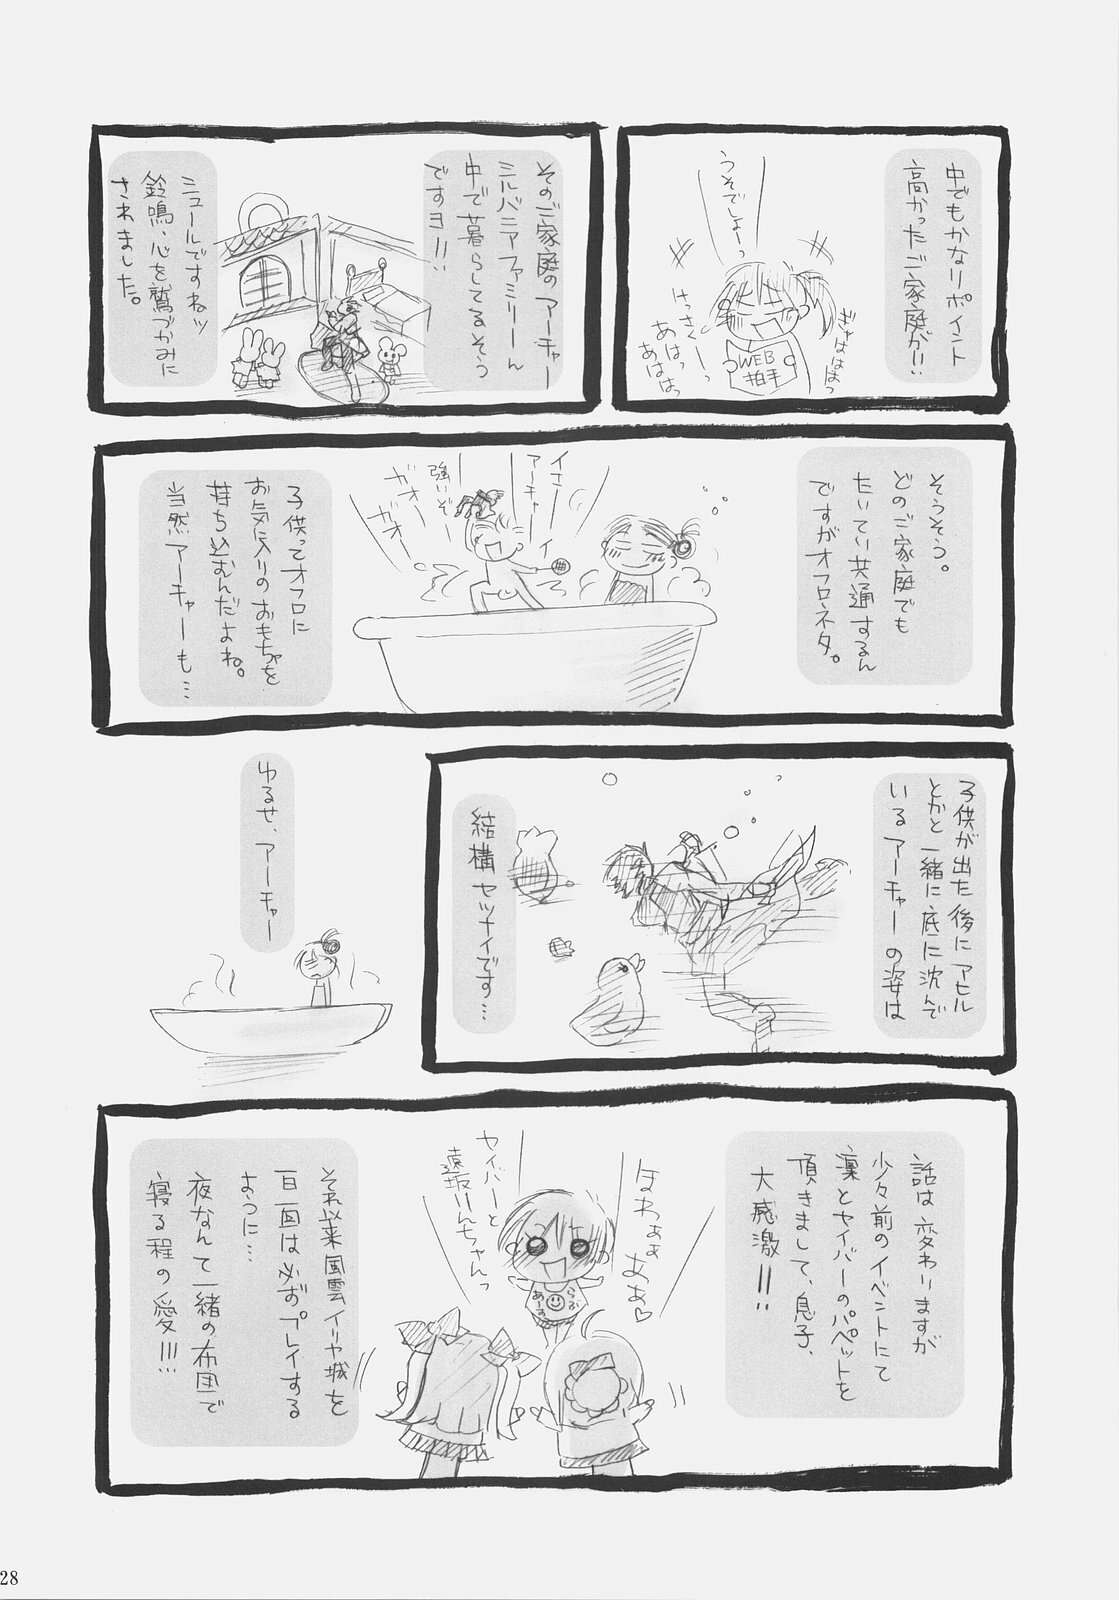 中でもかなりポイント
高かったご家庭が!!
うそでしょーっ
けっさくーっ
あはっ
あははっ
ギャははははっ
WEB
拍手
そのご家庭のアーチャー
シルバニアファミリーん
中で暮らしてるそう
ですヨ!!!
シュールですねッ
鈴鳴、心を鷲づかみに
されました。
そうそう。
どのご家庭でも
たいてい共通するん
ですがオフロネタ。
イさー
アーチャーイ
強いぞ
ガオー
ガオー
子供ってオフロに
お気に入りのおもちゃを
持ち込むんだよね。
当然アーチャーも…
子供が出た後にアヒル
とかと一緒に底に沈んで
いるアーチャーの姿は
結構セツナイです…
ゆるせ、アーチャー
話は変わりますが
少々前のイベントにて
凛とセイバーのパペットを
頂きまして、息子、
大感激!!!
ほわぁぁ
ああ♡
セイバーと
遠坂りんちゃんっ
らぶ
あーす
それ以来風雲イリヤ城を
一日一回は必ずプレイする
ように…
夜なんて一緒の布団で
寝る程の愛!!!
28